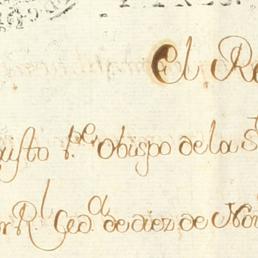 El Re
usto p.r Obispo de la S
n R.l Ced.a de diez de Nov